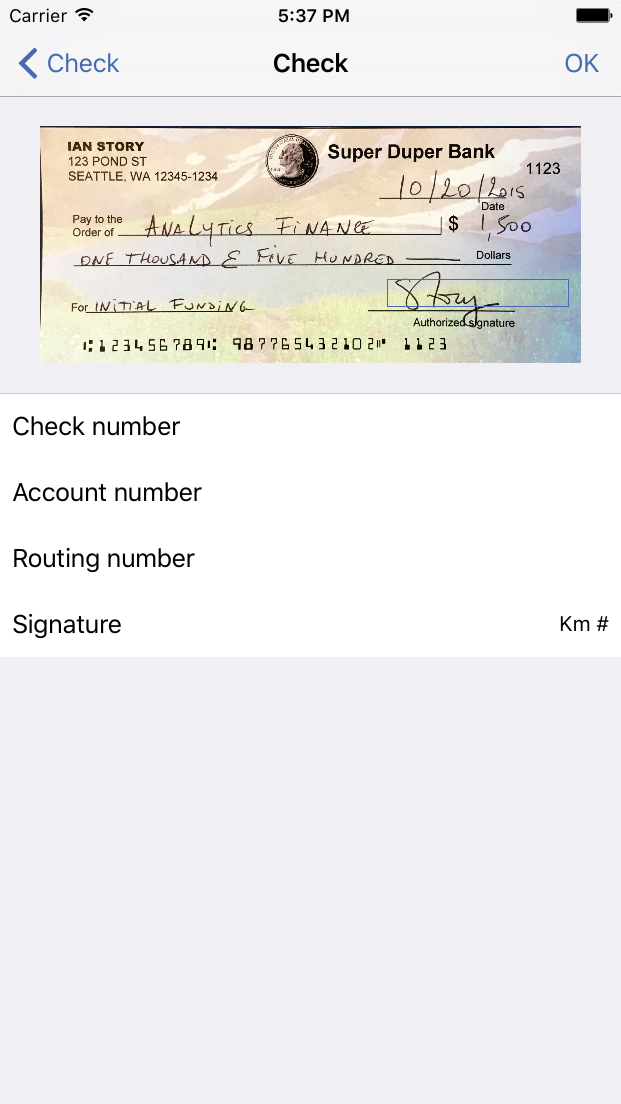 Carrier 5:37 PM
Check Check OK
IAN STORY
123 POND ST
SEATTLE, WA 12345-1234
Super Duper Bank
1123
10/20/2015
Date
Pay to the
Order of ANALYTICS FINANCE $ 1,500
ONE THOUSAND & FIVE HUNDRED Dollars
For INITIAL FUNDING Story
Authorized signature
⑆123456789⑆ 987765432102⑈ 1123
Check number
Account number
Routing number
Signature Km #